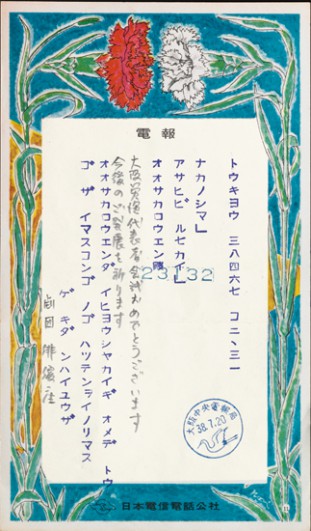 電報
トウキヨウ 三八四六七 コ二、三一
ナカノシマ」
アサヒビルセカイ」
オオサカコウエン隣
23132
大阪労演代表者会議おめでとうございます
今後のご発展を祈ります
オオサカコウエンダイヒヨウシヤカイギ オメデトウ
ゴザイマスコンゴノゴハツテンヲイノリマス
ゲキダンハイユウザ
劇団俳優座
大阪中央電報局
38.7.20
日本電信電話公社